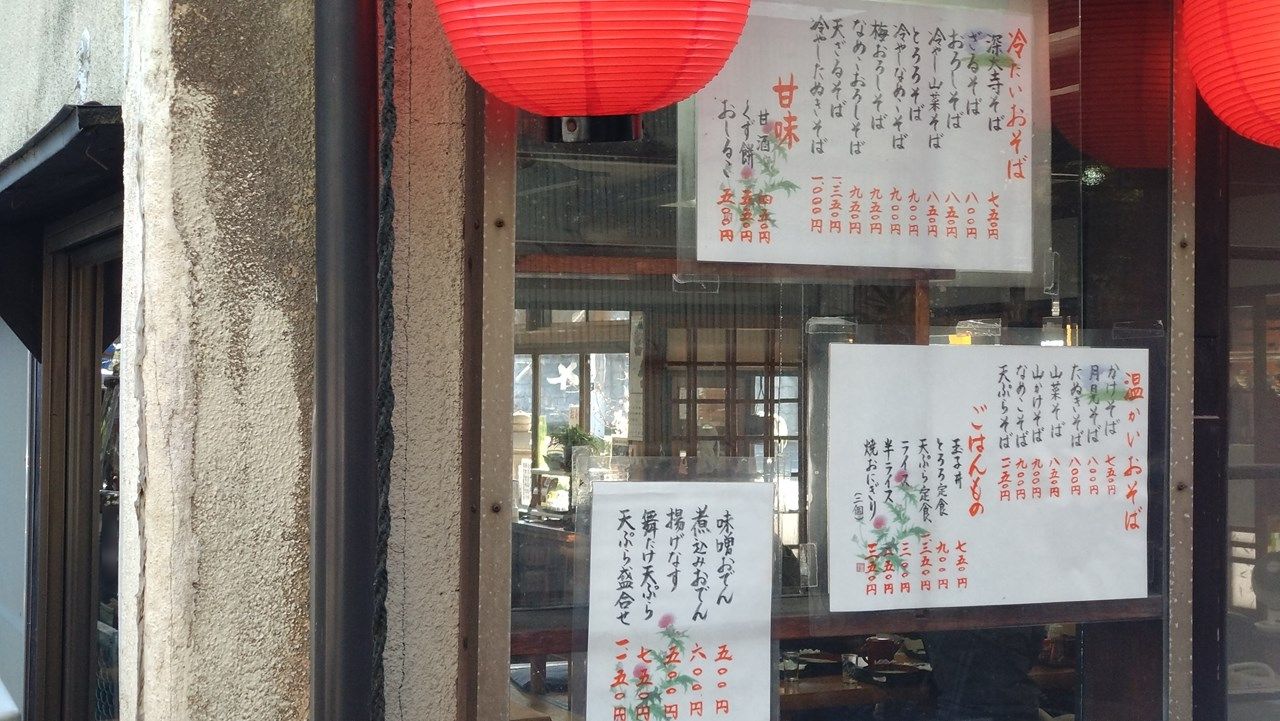 冷たいおそば
深大寺そば 七五〇円
ざるそば 八〇〇円
おろしそば 八五〇円
冷やし山菜そば 八五〇円
とろろそば 九〇〇円
冷やしなめこそば 九〇〇円
梅おろしそば 九五〇円
なめこおろしそば 九五〇円
天ざるそば 一三五〇円
冷やしたぬきそば 一〇〇〇円
甘味
甘酒 四五〇円
くず餅 五五〇円
おしるこ
温かいおそば
かけそば 七五〇円
月見そば 八〇〇円
たぬきそば 八〇〇円
山菜そば 八五〇円
山かけそば 九〇〇円
なめこそば 九〇〇円
天ぷらそば 一二五〇円
ごはんもの
玉子丼 七五〇円
とろろ定食 九〇〇円
天ぷら定食 一三五〇円
ライス 三〇〇円
半ライス
焼おにぎり 三五〇円
味噌おでん 五〇〇円
煮込みおでん 六〇〇円
揚げなす
舞だけ天ぷら 七五〇円
天ぷら盛合せ